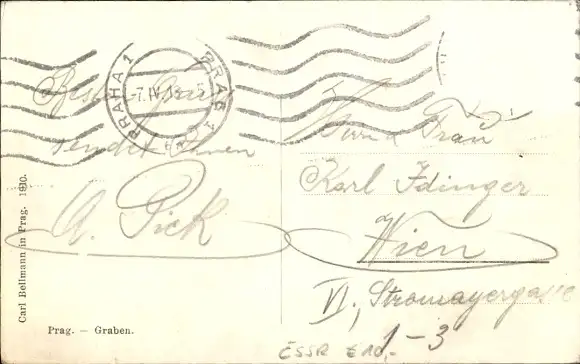 PRAHA 1
PRAG 1
Beste Grüße
sendet Ihnen
A. Pick
Herrn & Frau
Karl Idinger
Wien
VI., Stromayergasse
1-3
Carl Bellmann in Prag. 1910.
Prag. — Graben.
ČSSR